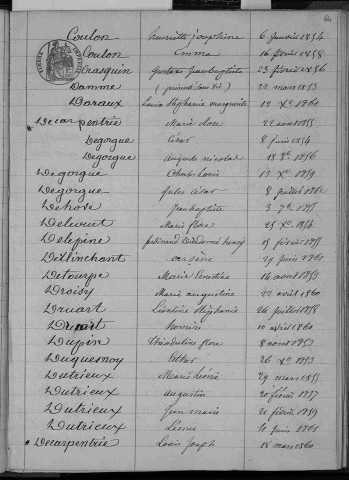 Coulon henriette joséphine 6 janvier 1854
Coulon Emma 16 février 1858
Crasquin Gustave jeanbaptiste 23 février 1856
Damme 22 mars 1853
Doraux Louise Stéphanie marguerite 12 Xbre 1860
Decarpentrie Marie 22 août 1855
Degorgue César 8 juin 1854
Degorgue Auguste nicolas 18 8bre 1856
Degorgue Charles Louis 13 Xbre 1859
Degorgue Jules César 8 juillet 1862
Dehove Jeanbaptiste 3 7bre 1855
Delcourt Marie flore 25 Xbre 1854
Delépine ferdinand henry 15 février 1855
Deslinchant arsène 29 juin 1861
Detourpe Marie 14 août 1853
Droisy Marie augustine 22 avril 1860
Druart Léontine Stéphanie 26 juillet 1858
Druart honorine 10 avril 1860
Dupin flore 8 août 1852
Duquesnoy Esther 26 Xbre 1853
Dutrieux Marie Léonie 29 mars 1855
Dutrieux augustin 20 février 1857
Dutrieux Jean marie 21 février 1859
Dutrieux Léonie 11 juin 1861
Decarpentrie Louis joseph 18 mars 1860